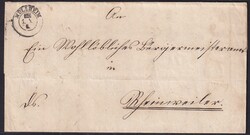 An
Ein Wohllöbliches Bürgermeisteramt
in
Rheinweiler.